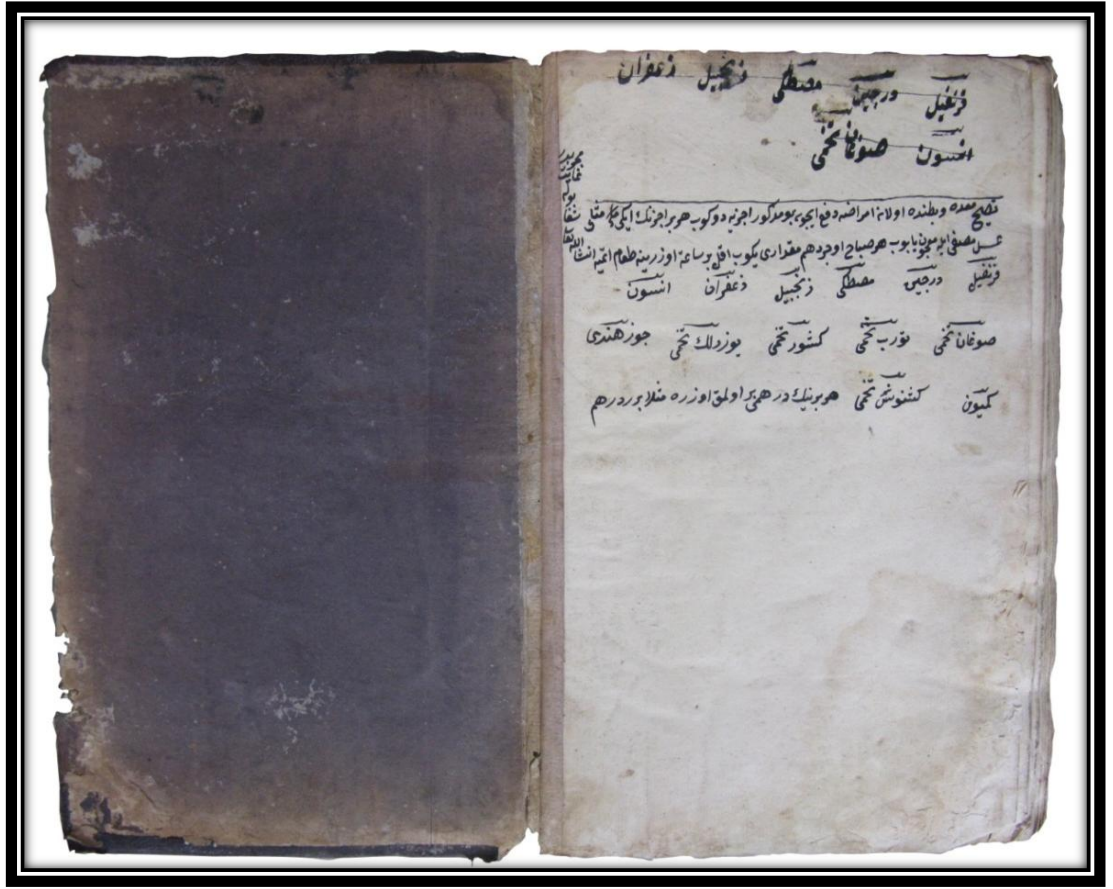 قرنفيل درچين مصطكى زنجبيل زعفران
انسون صوغان تخمى
معده وبطنده اولان امراضه دفع ايچون بو مذكور اجزايه دوكوب هر بر اجزانك ايكى مثلى
عسل مصفى ايله معجون يابوب هر صباح او بر درهم مقدارى يكوب اقل بر ساعة اوزرينه طعام اتميه انشا الله تعالى
شفا بوله
غايت
مجربدر
قرنفيل درچين مصطكى زنجبيل زعفران انسون
صوغان تخمى تورب تخمى كشور تخمى يوزدلك تخمى جوز هندى
كميون كشنوش تخمى هر برينك درهمى بر اولمق اوزره مثلا برر درهم